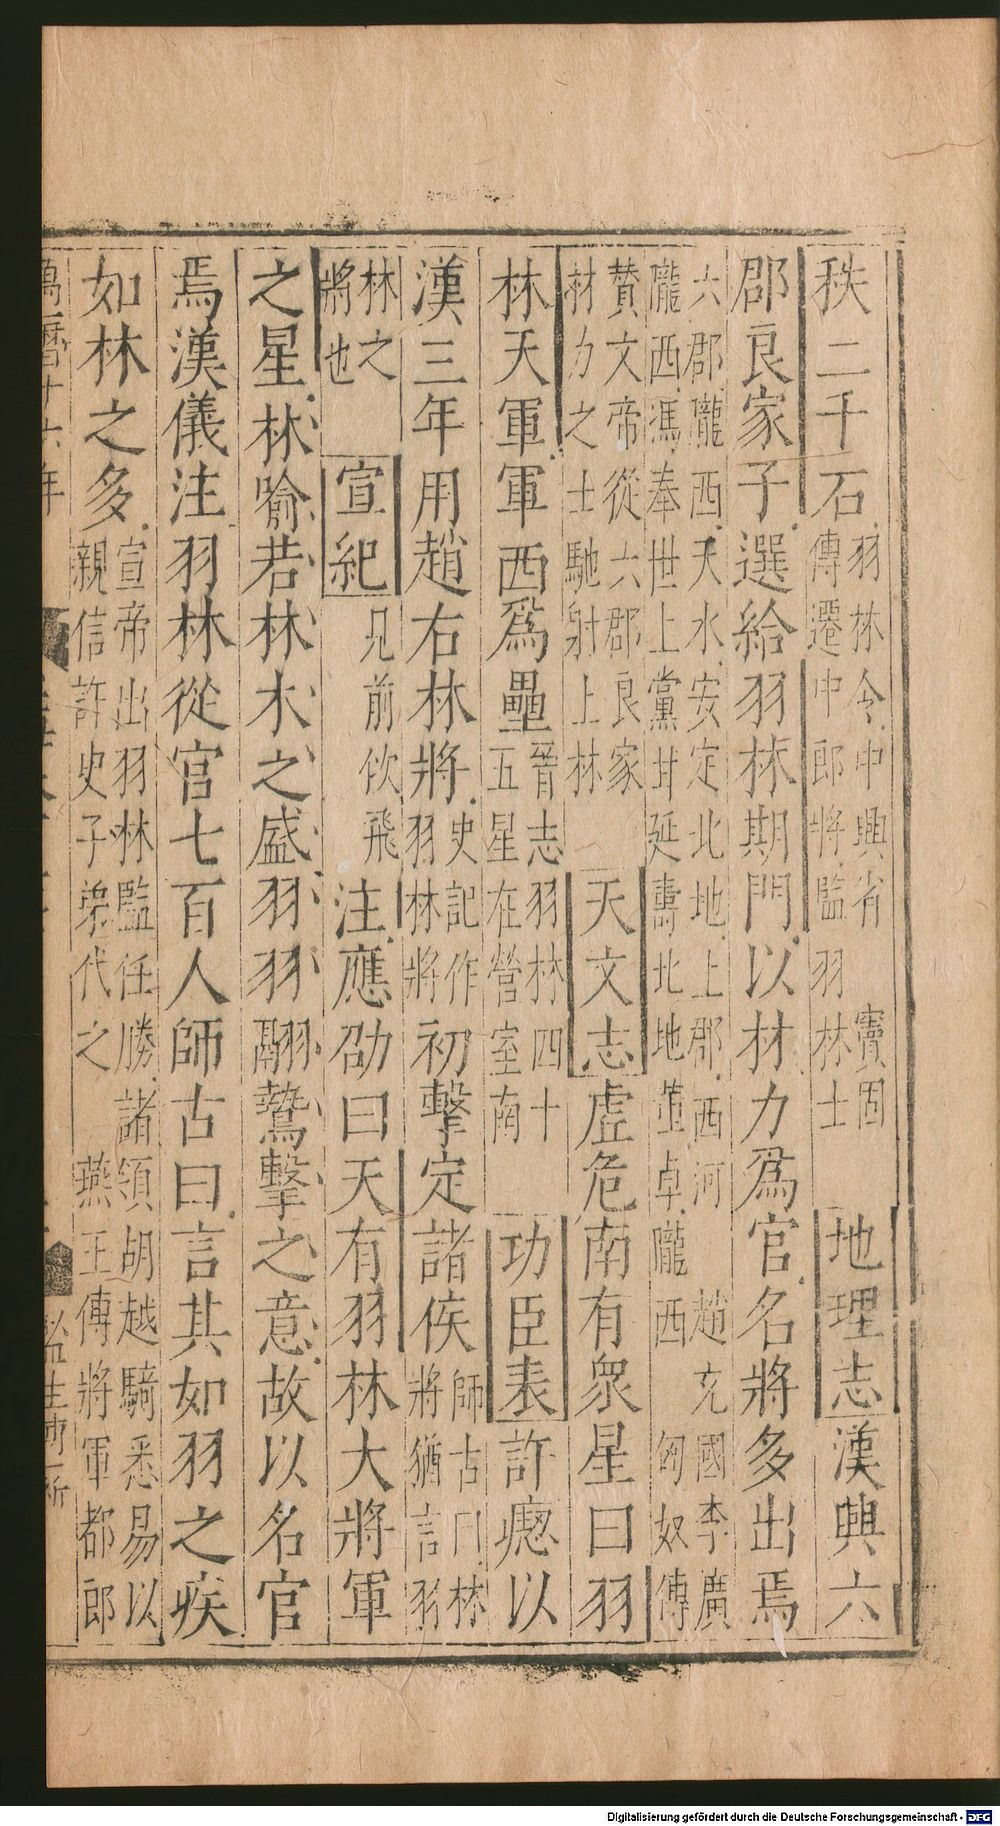 秩二千石羽林令中興省傳遷中郎將監竇固羽林士地理志漢興六
郡良家子選給羽林期門以材力爲官名將多出焉
六郡隴西天水安定北地上郡西河趙充國李廣隴西馮奉世上黨甘延壽北地董卓隴西匈奴傳
贊文帝從六郡良家材力之士馳射上林天文志虛危南有衆星曰羽
林天軍軍西爲壘晉志羽林四十五星在營室南功臣表許瘛以
漢三年用趙右林將史記作羽林將初擊定諸侯師古曰林將猶言羽
林之將也宣紀見前佽飛注應劭曰天有羽林大將軍
之星林喻若林木之盛羽羽翮鷙擊之意故以名官
焉漢儀注羽林從官七百人師古曰言其如羽之疾
如林之多宣帝出羽林監任勝諸領胡越騎悉易以親信許史子弟代之燕王傳將軍都郎
萬曆十六年
監生
Digitalisierung gefördert durch die Deutsche Forschungsgemeinschaft - DFG